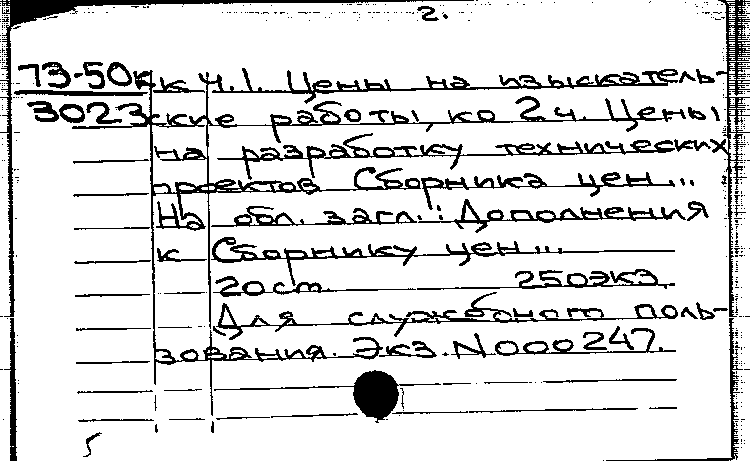 2.
73-50кк ч.1. Цены на изыскатель-
3023 ские работы, ко 2 ч. Цены
на разработку технических
проектов Сборника цен...
На обл. загл.: Дополнения
к Сборнику цен...
20 ст. 250 экз.
Для служебного поль-
зования. Экз. N 000247.
5